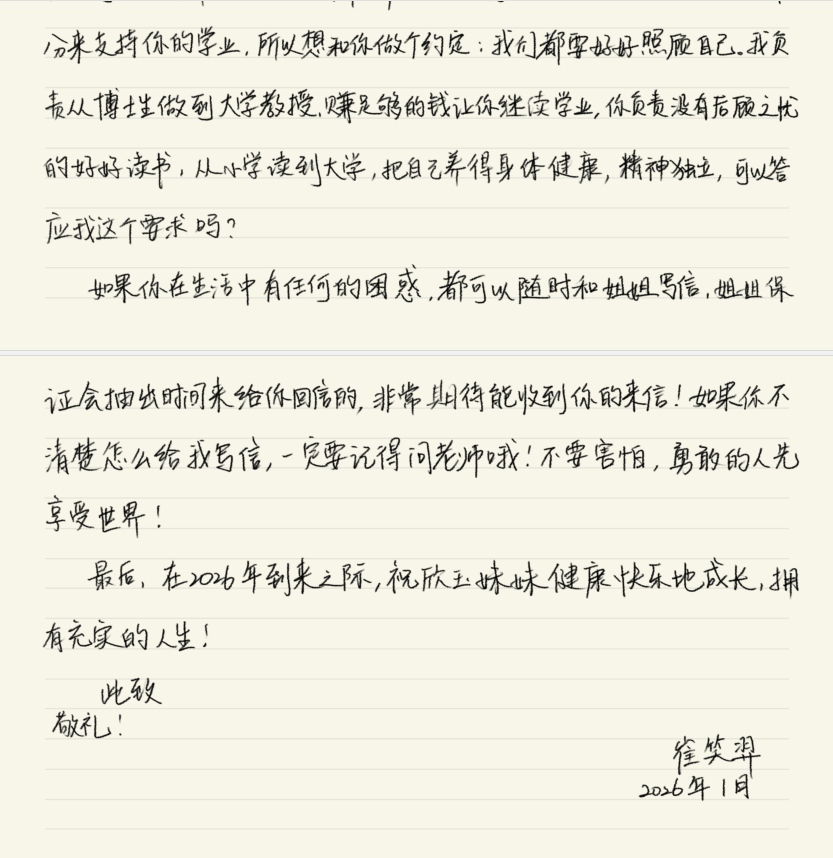 份来支持你的学业，所以想和你做个约定：我们都要好好照顾自己。我负
责从博士生做到大学教授，赚足够的钱让你继续学业，你负责没有后顾之忧
的好好读书，从小学读到大学，把自己养得身体健康，精神独立，可以答
应我这个要求吗？
如果你在生活中有任何的困惑，都可以随时和姐姐写信，姐姐保
证会抽出时间来给你回信的，非常期待能收到你的来信！如果你不
清楚怎么给我写信，一定要记得问老师哦！不要害怕，勇敢的人先
享受世界！
最后，在2026年到来之际，祝欣玉妹妹健康快乐地成长，拥
有充实的人生！
此致
敬礼！
崔笑羿
2026年1月